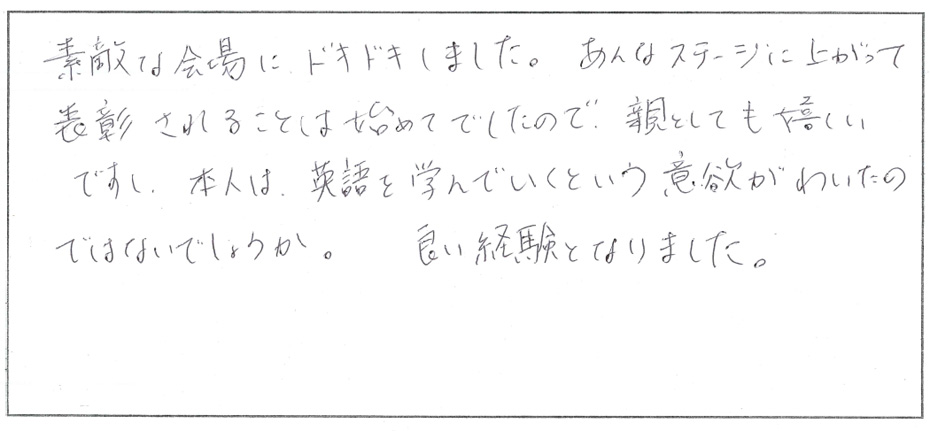 素敵な会場に、ドキドキしました。 あんなステージに上がって
表彰されることは始めてでしたので、親としても嬉しい
ですし、本人は、英語を学んでいくという意欲がわいたの
ではないでしょうか。 良い経験となりました。